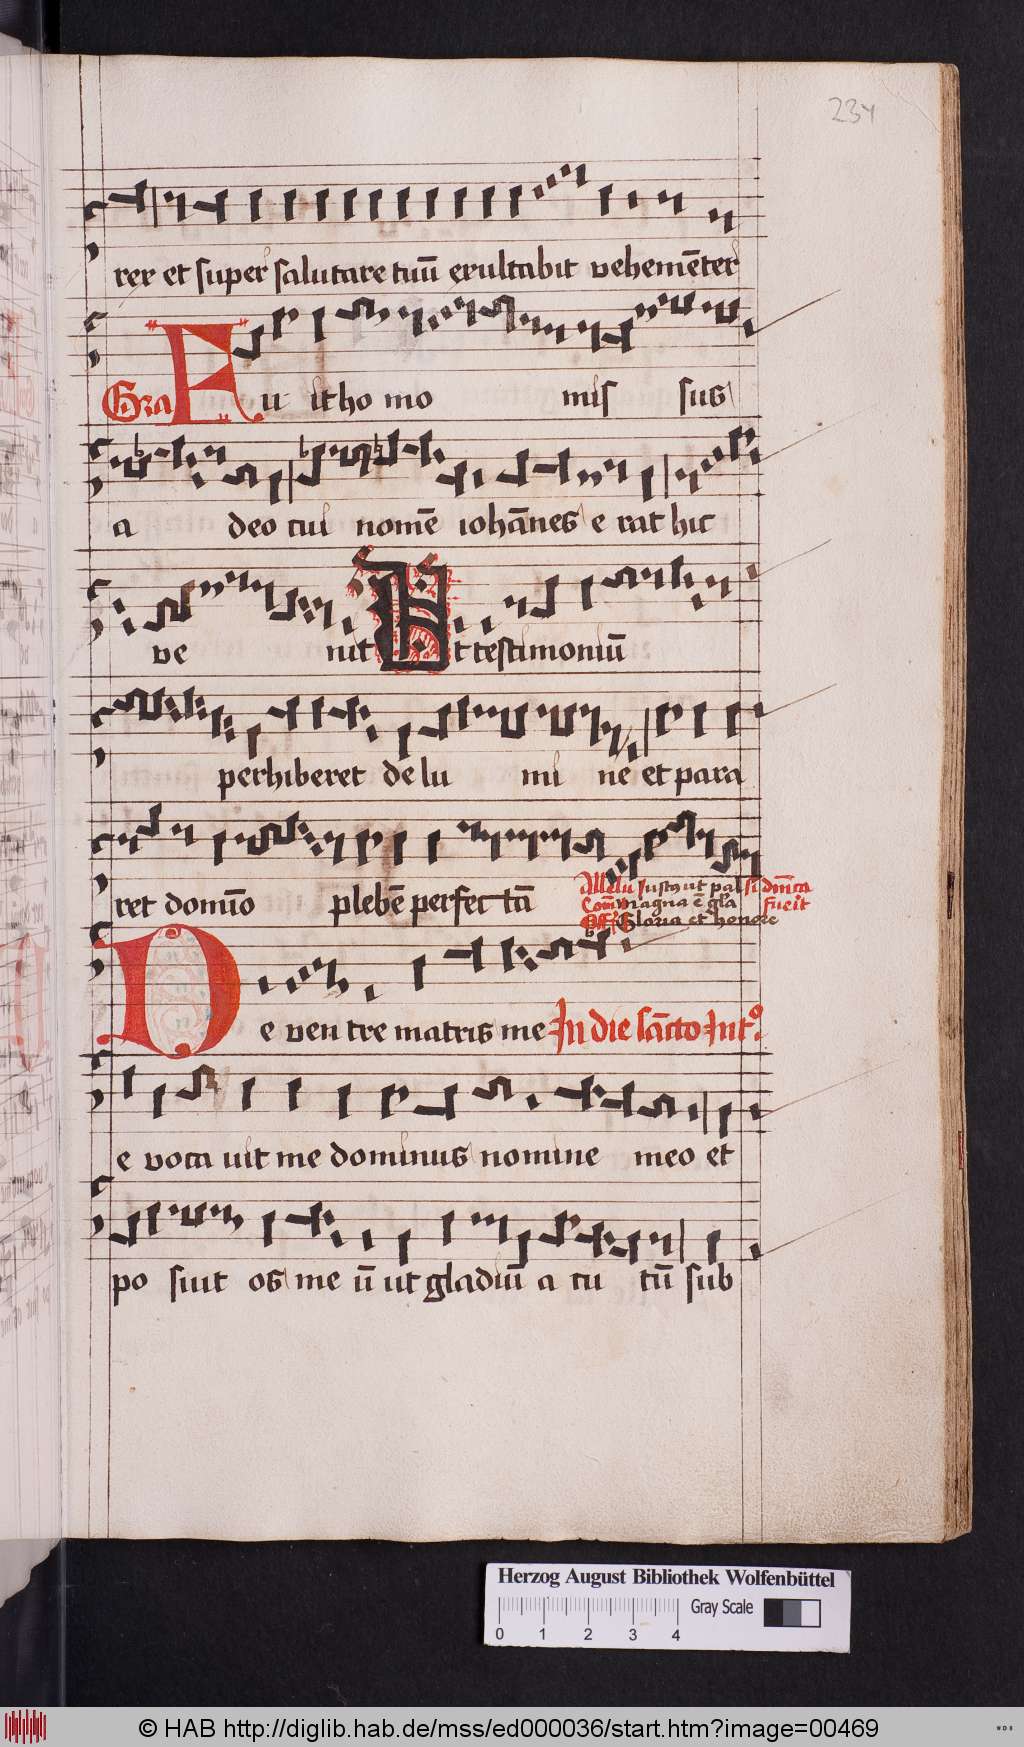 234
rex et super salutare tuū exultabit vehemēter
Gra Fu it ho mo mis sus
a deo cui nomē iohānes e rat hic
ve nit Ut testimoniū
perhiberet de lu mi ne et para
ret domīo plebē perfec tā
Allelu Justꝰ ut pal si dm̄ca
Com̄ magna ē gla fuerit
Off Gloria et honore
De ven tre matris me In die sancto Int
e voca uit me dominus nomine meo et
po suit os me ū ut gladiū a cu tū sub
Herzog August Bibliothek Wolfenbüttel
Gray Scale
0 1 2 3 4
© HAB http://diglib.hab.de/mss/ed000036/start.htm?image=00469